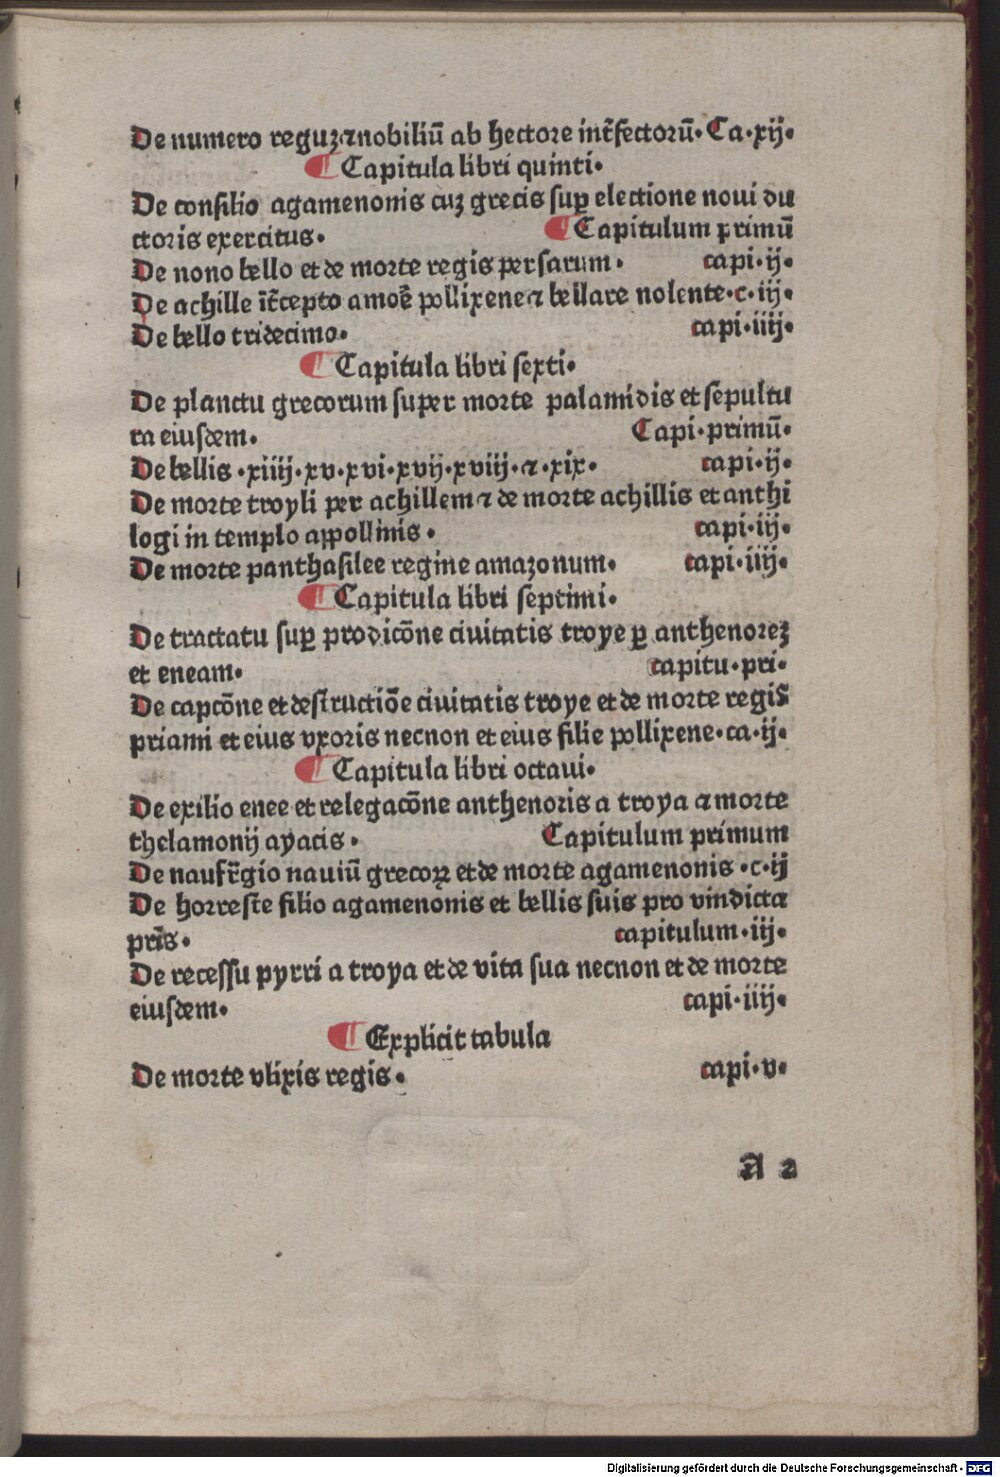 De numero reguz ⁊ nobiliū ab hectore int̄fectorū· Ca·xij·
¶ Capitula libri quinti·
De consilio agamenonis cuz grecis suꝑ electione noui du
ctoris exercitus· ¶ Capitulum primū
De nono bello et de morte regis persarum· capi·ij·
De achille īt̄cepto amoē pollixene ⁊ bellare nolente·c·iij·
De bello tridecimo· capi·iiij·
¶ Capitula libri sexti·
De planctu grecorum super morte palamidis et sepultu
ra eiusdem· Capi·primū·
De bellis ·xiiij·xv·xvi·xvij·xviij·⁊·xix· capi·ij·
De morte troyli per achillem ⁊ de morte achillis et anthi
logi in templo appollinis· capi·iij·
De morte panthasilee regine amazonum· capi·iiij·
¶ Capitula libri septimi·
De tractatu suꝑ prodicōne ciuitatis troye ꝑ anthenorez
et eneam· capitu·pri·
De capcōne et destructiōe ciuitatis troye et de morte regis
priami et eius vxoris necnon et eius filie pollixene·ca·ij·
¶ Capitula libri octaui·
De exilio enee et relegacōne anthenoris a troya ⁊ morte
thelamonij ayacis· Capitulum primum
De naufr̄gio nauiū grecoꝝ et de morte agamenonis ·c·ij
De horreste filio agamenonis et bellis suis pro vindicta
pr̄is· capitulum·iij·
De recessu pyrri a troya et de vita sua necnon et de morte
eiusdem· capi·iiij·
¶ Explicit tabula
De morte vlixis regis· capi·v·
A 2
Digitalisierung gefördert durch die Deutsche Forschungsgemeinschaft - DFG